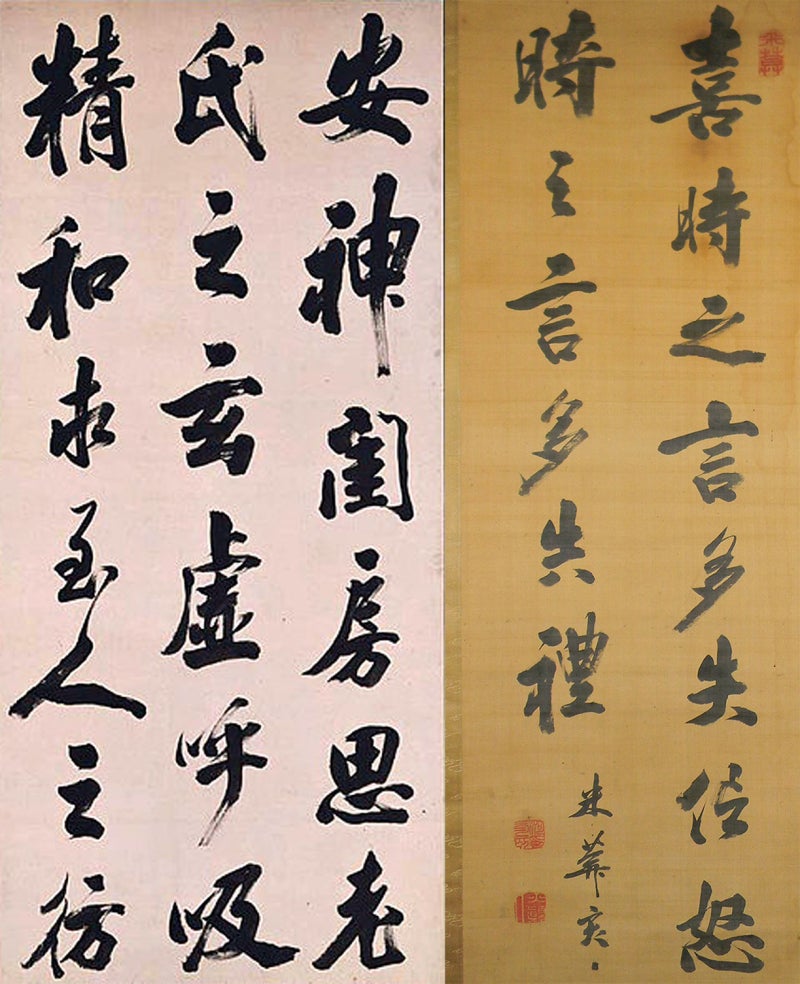 安神閨房思老
氏之玄虛呼吸
精和求至人之彷
喜時之言多失信怒
時之言多失禮
米葊亥